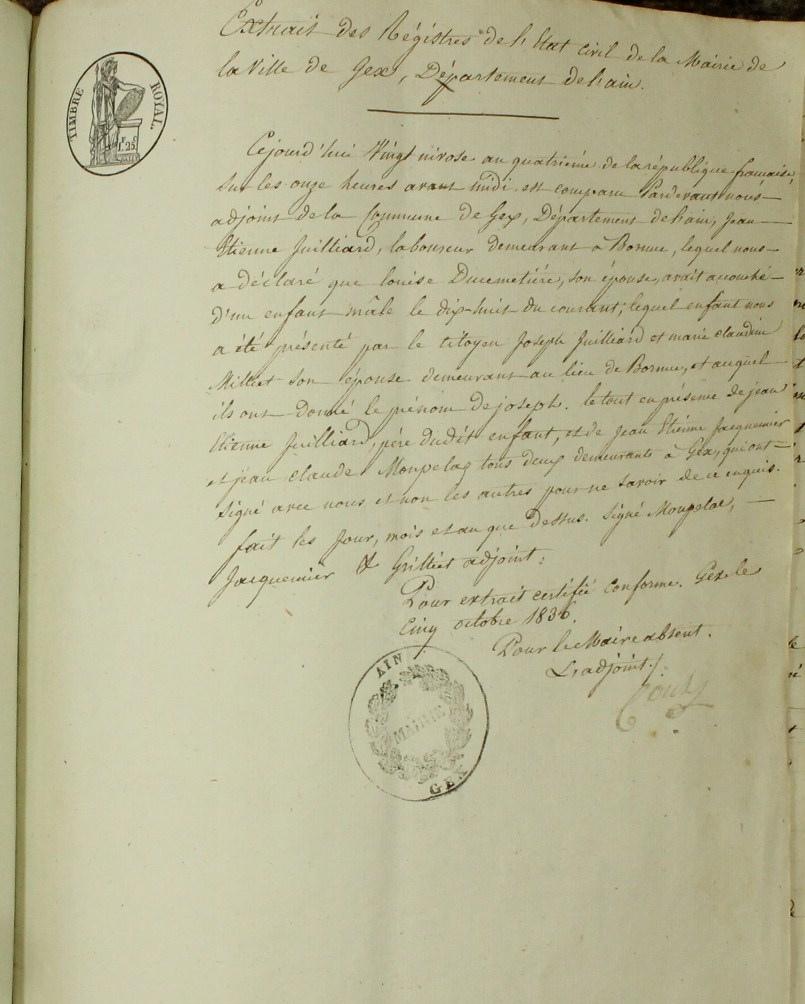 TIMBRE ROYAL.
1F. 25c
Extrait des Régistres de l'Etat civil de la Mairie de
la Ville de Gex, Département de l'ain.
Cejourd'hui Vingt nivose an quatrième de la république française,
sur les onze heures avant midi est comparu Pardevant nous
adjoint de la Commune de Gex, Département de l'ain, Jean
Etienne Juilliard, laboureur demeurant à Bornue, lequel nous
a déclaré que louise Ducemetiére, son épouse, avait accouché
d'un enfant mâle le dix-huit du courant; lequel enfant nous
a été présenté par le citoyen Joseph Juilliard et marie claudine
Milliet son épouse demeurant au lieu de Bornue, et auquel
ils ont donné le prénom de joseph. le tout en présence de jean
Etienne Juilliard, père dudit enfant, et de Jean Etiénne Jacquemier
et jean claude Monpelaz tous deux demeurants à Gex, qui ont
signé avec nous et non les autres pour ne savoir de ce enquis.
fait les jour, mois et an que dessus. signé Monpelaz,
Jacquemier & Grilliet adjoint:
Pour extrait certifié conforme. Gex le
Cinq octobre 1836.
Pour le Maire absent.
L'adjoint /.
AIN
MAIRIE
GEX